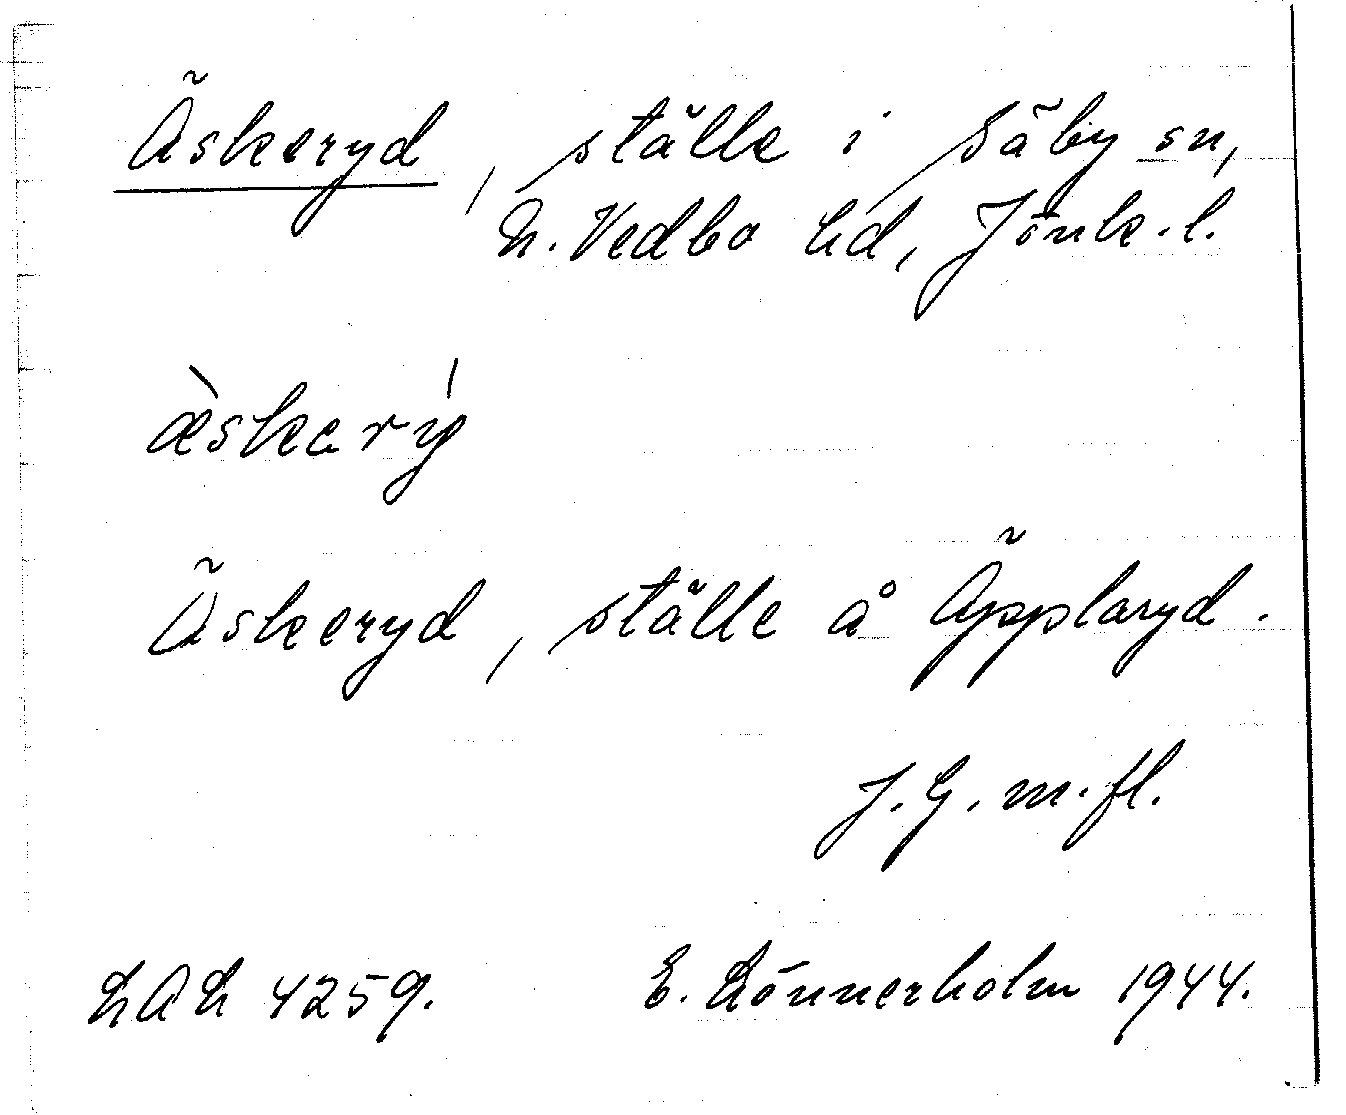 Äskeryd, ställe i Säby sn,
N. Vedbo hd, Jönk. l.
æ̀skerý
Äskeryd, ställe å Äpplaryd.
J. G. m. fl.
LAL 4259. E. Lönnerholm 1944.